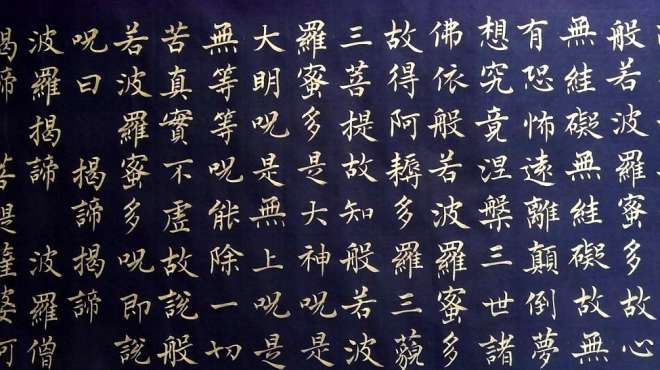 般若波羅蜜多故心
無絓礙無絓礙故無
有恐怖遠離顛倒夢
想究竟涅槃三世諸
佛依般若波羅蜜多
故得阿耨多羅三藐
三菩提故知般若波
羅蜜多是大神呪是
大明呪是無上呪是
無等等呪能除一切
苦真實不虛故說般
若波羅蜜多呪即說
呪曰 揭諦揭諦
波羅揭諦 波羅僧
揭諦 菩提薩婆訶